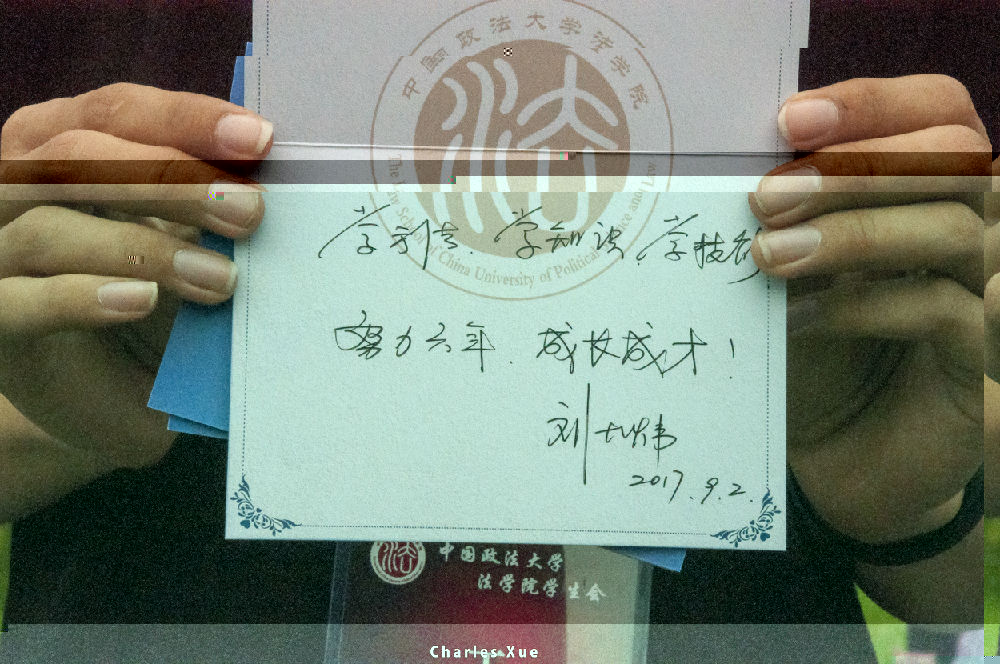 中国政法大学法学院
The Law School of China University of Political Science and Law
学方法、学知识、学技能
努力六年、成长成才!
刘大炜
2017.9.2.
中国政法大学
法学院学生会
Charles Xue